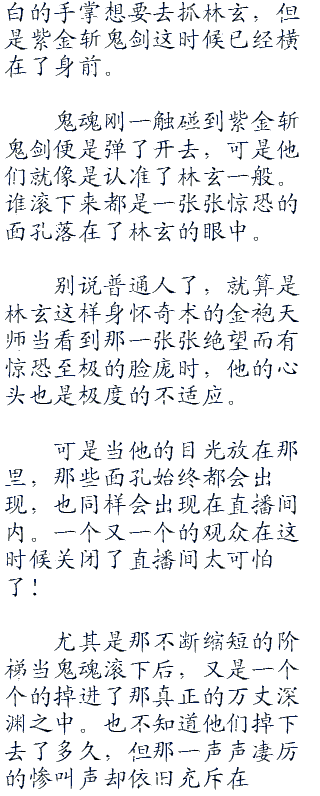 白的手掌想要去抓林玄，但
是紫金斩鬼剑这时候已经横
在了身前。
鬼魂刚一触碰到紫金斩
鬼剑便是弹了开去，可是他
们就像是认准了林玄一般。
谁滚下来都是一张张惊恐的
面孔落在了林玄的眼中。
别说普通人了，就算是
林玄这样身怀奇术的金袍天
师当看到那一张张绝望而有
惊恐至极的脸庞时，他的心
头也是极度的不适应。
可是当他的目光放在那
里，那些面孔始终都会出
现，也同样会出现在直播间
内。一个又一个的观众在这
时候关闭了直播间太可怕
了！
尤其是那不断缩短的阶
梯当鬼魂滚下后，又是一个
个的掉进了那真正的万丈深
渊之中。也不知道他们掉下
去了多久，但那一声声凄厉
的惨叫声却依旧充斥在